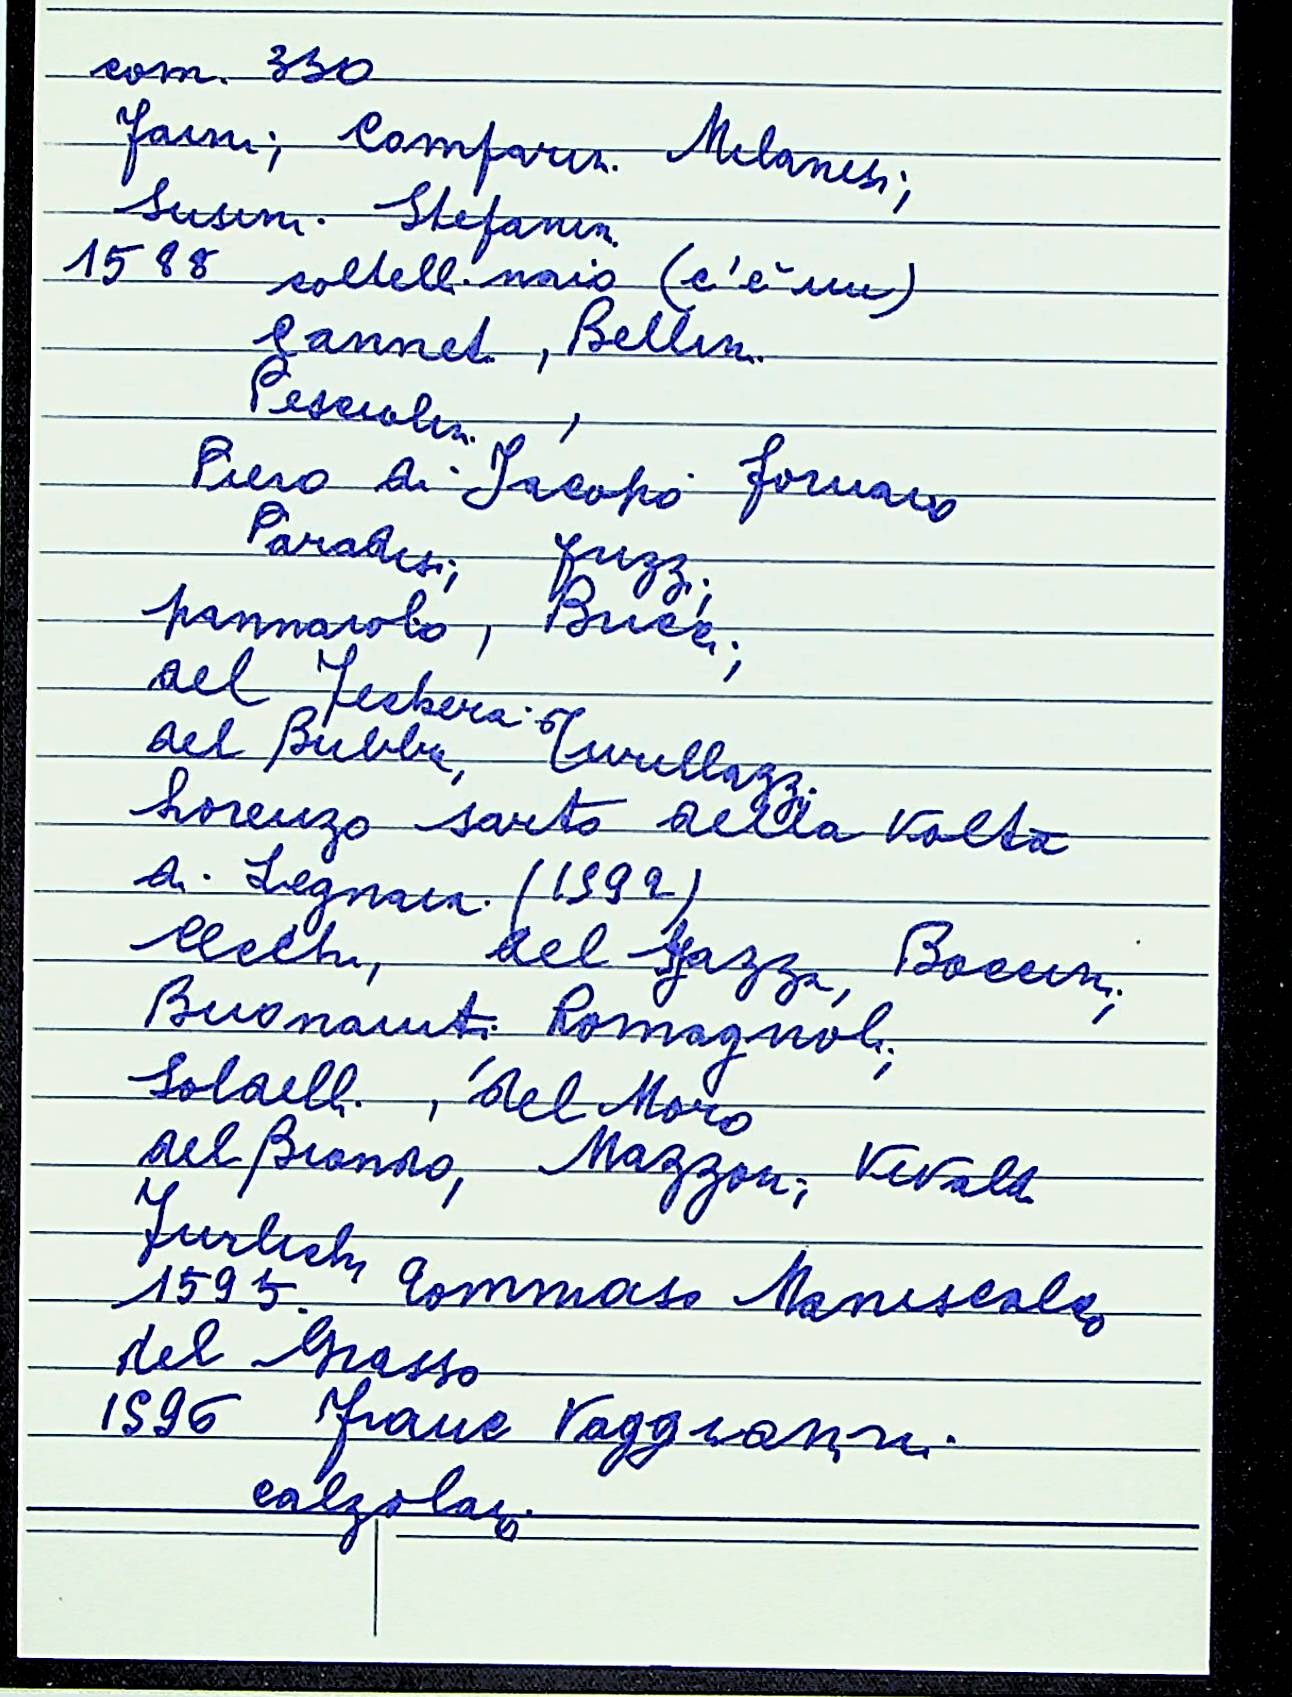 com. 330
Faini; Comparin. Milanesi;
Susini. Stefanin.
1588 coltellinaio (c'è un)
Cannet. , Bellin.
Pesciolin. ,
Piero di Jacopo fornaio
Paradisi;
pannaiolo, Bucci;
del
del Bubba, Turullazzi
Lorenzo sarto della Volta
di Legnaia. (1592)
Cecchi, del Gazza, Boccini;
Buonaiuti Romagnoli;
Soldelli. , del Moro
del Biondo, Mazzoni; Vivaldi
1595. Tommaso Maniscalco
del Grasso
1596 Franc Vaggiannini.
calzolaio.